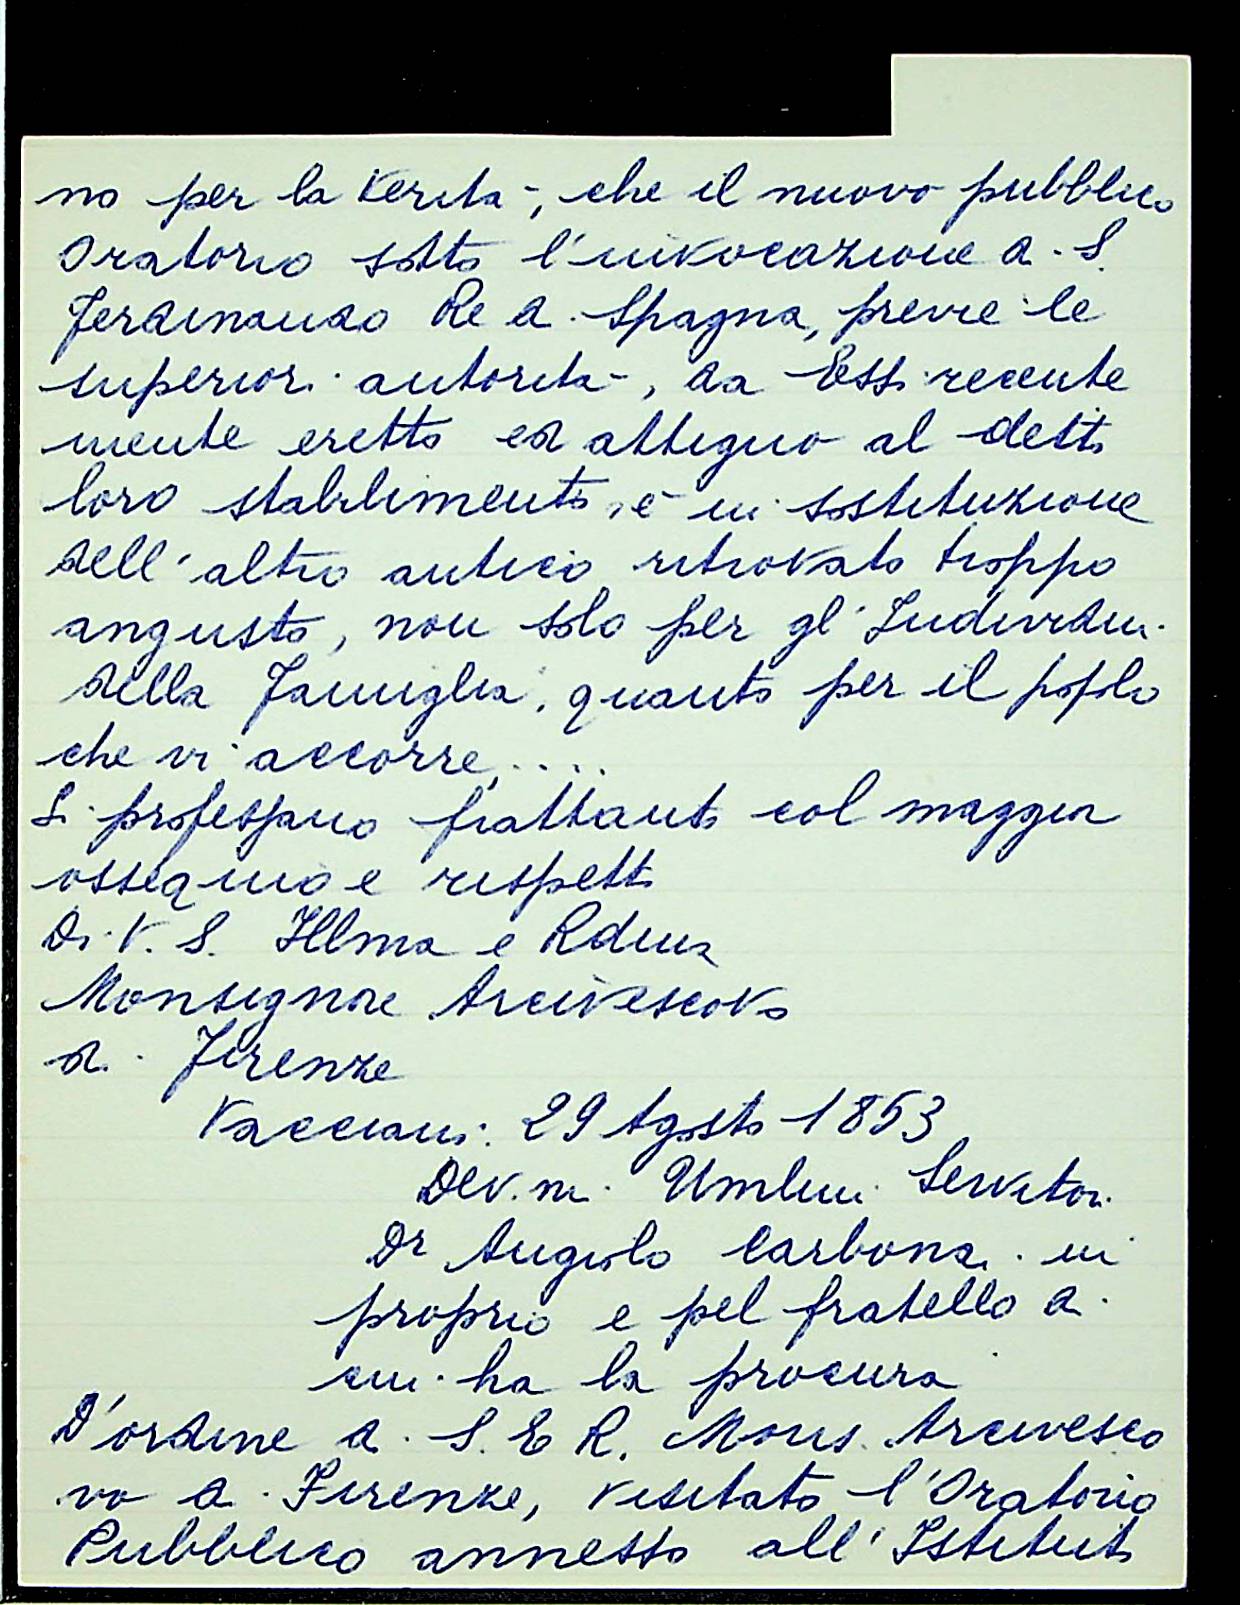 no per la verità, che il nuovo pubblico
Oratorio sotto l'invocazione di S.
Ferdinando Re di Spagna, previe le
superiori autorità, da Essi recente
mente eretto ed attiguo al detto
loro stabilimento, è in sostituzione
dell'altro antico ritrovato troppo
angusto, non solo per gl'Individui
della Famiglia, quanto per il popolo
che vi accorre,....
Si professano frattanto col maggior
ossequio e rispetto
Di V. S. Illma e Rdma
Monsignore Arcivescovo
di Firenze
Vacciano: 29 Agosto 1853
Dev.mi Umilmi Servitori
Dr Angiolo Carbonai in
proprio e pel fratello di
cui ha la procura
D'ordine di S. E R. Mons. Arcivesco
vo di Firenze, visitato l'Oratorio
Pubblico annesso all'Istituto